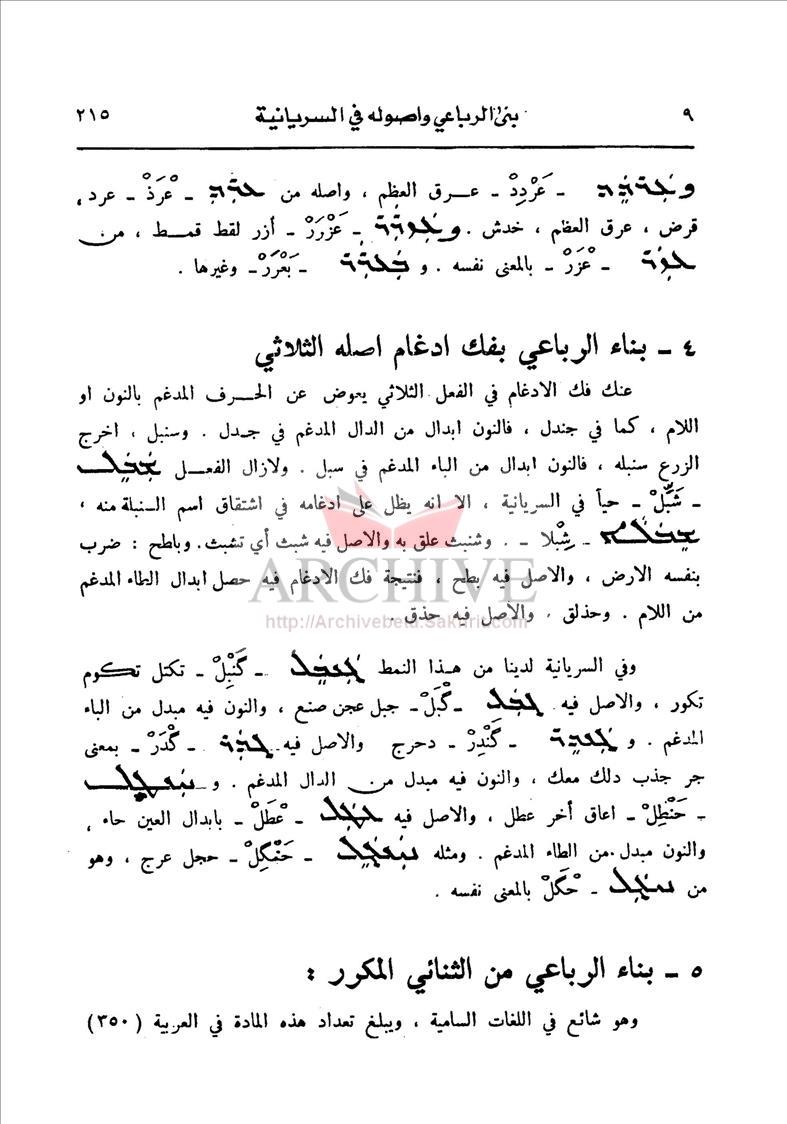 ٩ بنى الرباعي واصوله في السريانية ٢١٥
ـ عَرْدِدْ ـ عـرق العظم ، واصله من ـ عْرَدْ ـ عرد ،
قرض ، عرق العظم ، خدش . ـ عَزْرَرْ ـ أزر لقط قمـط ، من
ـ عْزَرْ ـ بالمعنى نفسه . و ـ بَعْرَرْ ـ وغيرها .
٤ ـ بناء الرباعي بفك ادغام اصله الثلاثي
عنك فك الادغام في الفعل الثلاثي يعوض عن الحـرف المدغم بالنون او
اللام ، كما في جندل ، فالنون ابدال من الدال المدغم في جـدل . وسنبل ، اخرج
الزرع سنبله ، فالنون ابدال من الباء المدغم في سبل . ولازال الفعـل ܫܰܒܶܠ
ـ شَبِّلْ ـ حيأ في السريانية ، الا انه يظل على ادغامه في اشتقاق اسم الـنبلة منه ،
ـ شِبْلا ـ . وشنبث علق به والاصل فيه شبث أي تشبث . وباطح : ضرب
بنفسه الارض ، والاصل فيه بطح ، فنتيجة فك الادغام فيه حصل ابدال الطاء المدغم
من اللام . وحذلق . والاصل فيه حذق .
وفي السريانية لدينا من هـذا النمط ܓܰܢܒܶܠ ـ گَنْبِلْ ـ تكتل تكوم
تكور ، والاصل فيه ܓܒܰܠ ـ گْبَلْ ـ جبل عجن صنع ، والنون فيه مبدل من الباء
المدغم . و ܓܰܢܕܶܪ ـ گَنْدِرْ ـ دحرج والاصل فيه ܓܕܰܪ ـ گْدَرْ ـ بمعنى
جر جذب دلك معك ، والنون فيه مبدل من الدال المدغم . و ܚܰܢܛܶܠ
ـ حَنْطِلْ ـ اعاق أخر عطل ، والاصل فيه ܥܛܰܠ ـ عْطَلْ ـ بابدال العين حاء ،
والنون مبدل من الطاء المدغم . ومثله ܚܰܢܓܶܠ ـ حَنْگِلْ ـ حجل عرج ، وهو
من ܚܓܰܠ ـ حْگَلْ ـ بالمعنى نفسه .
٥ ـ بناء الرباعي من الثنائي المكرر :
وهو شائع في اللغات السامية ، ويبلغ تعداد هذه المادة في العربية ( ٣٥٠ )
ARCHIVE
http://Archivebeta.Sakhrit.com